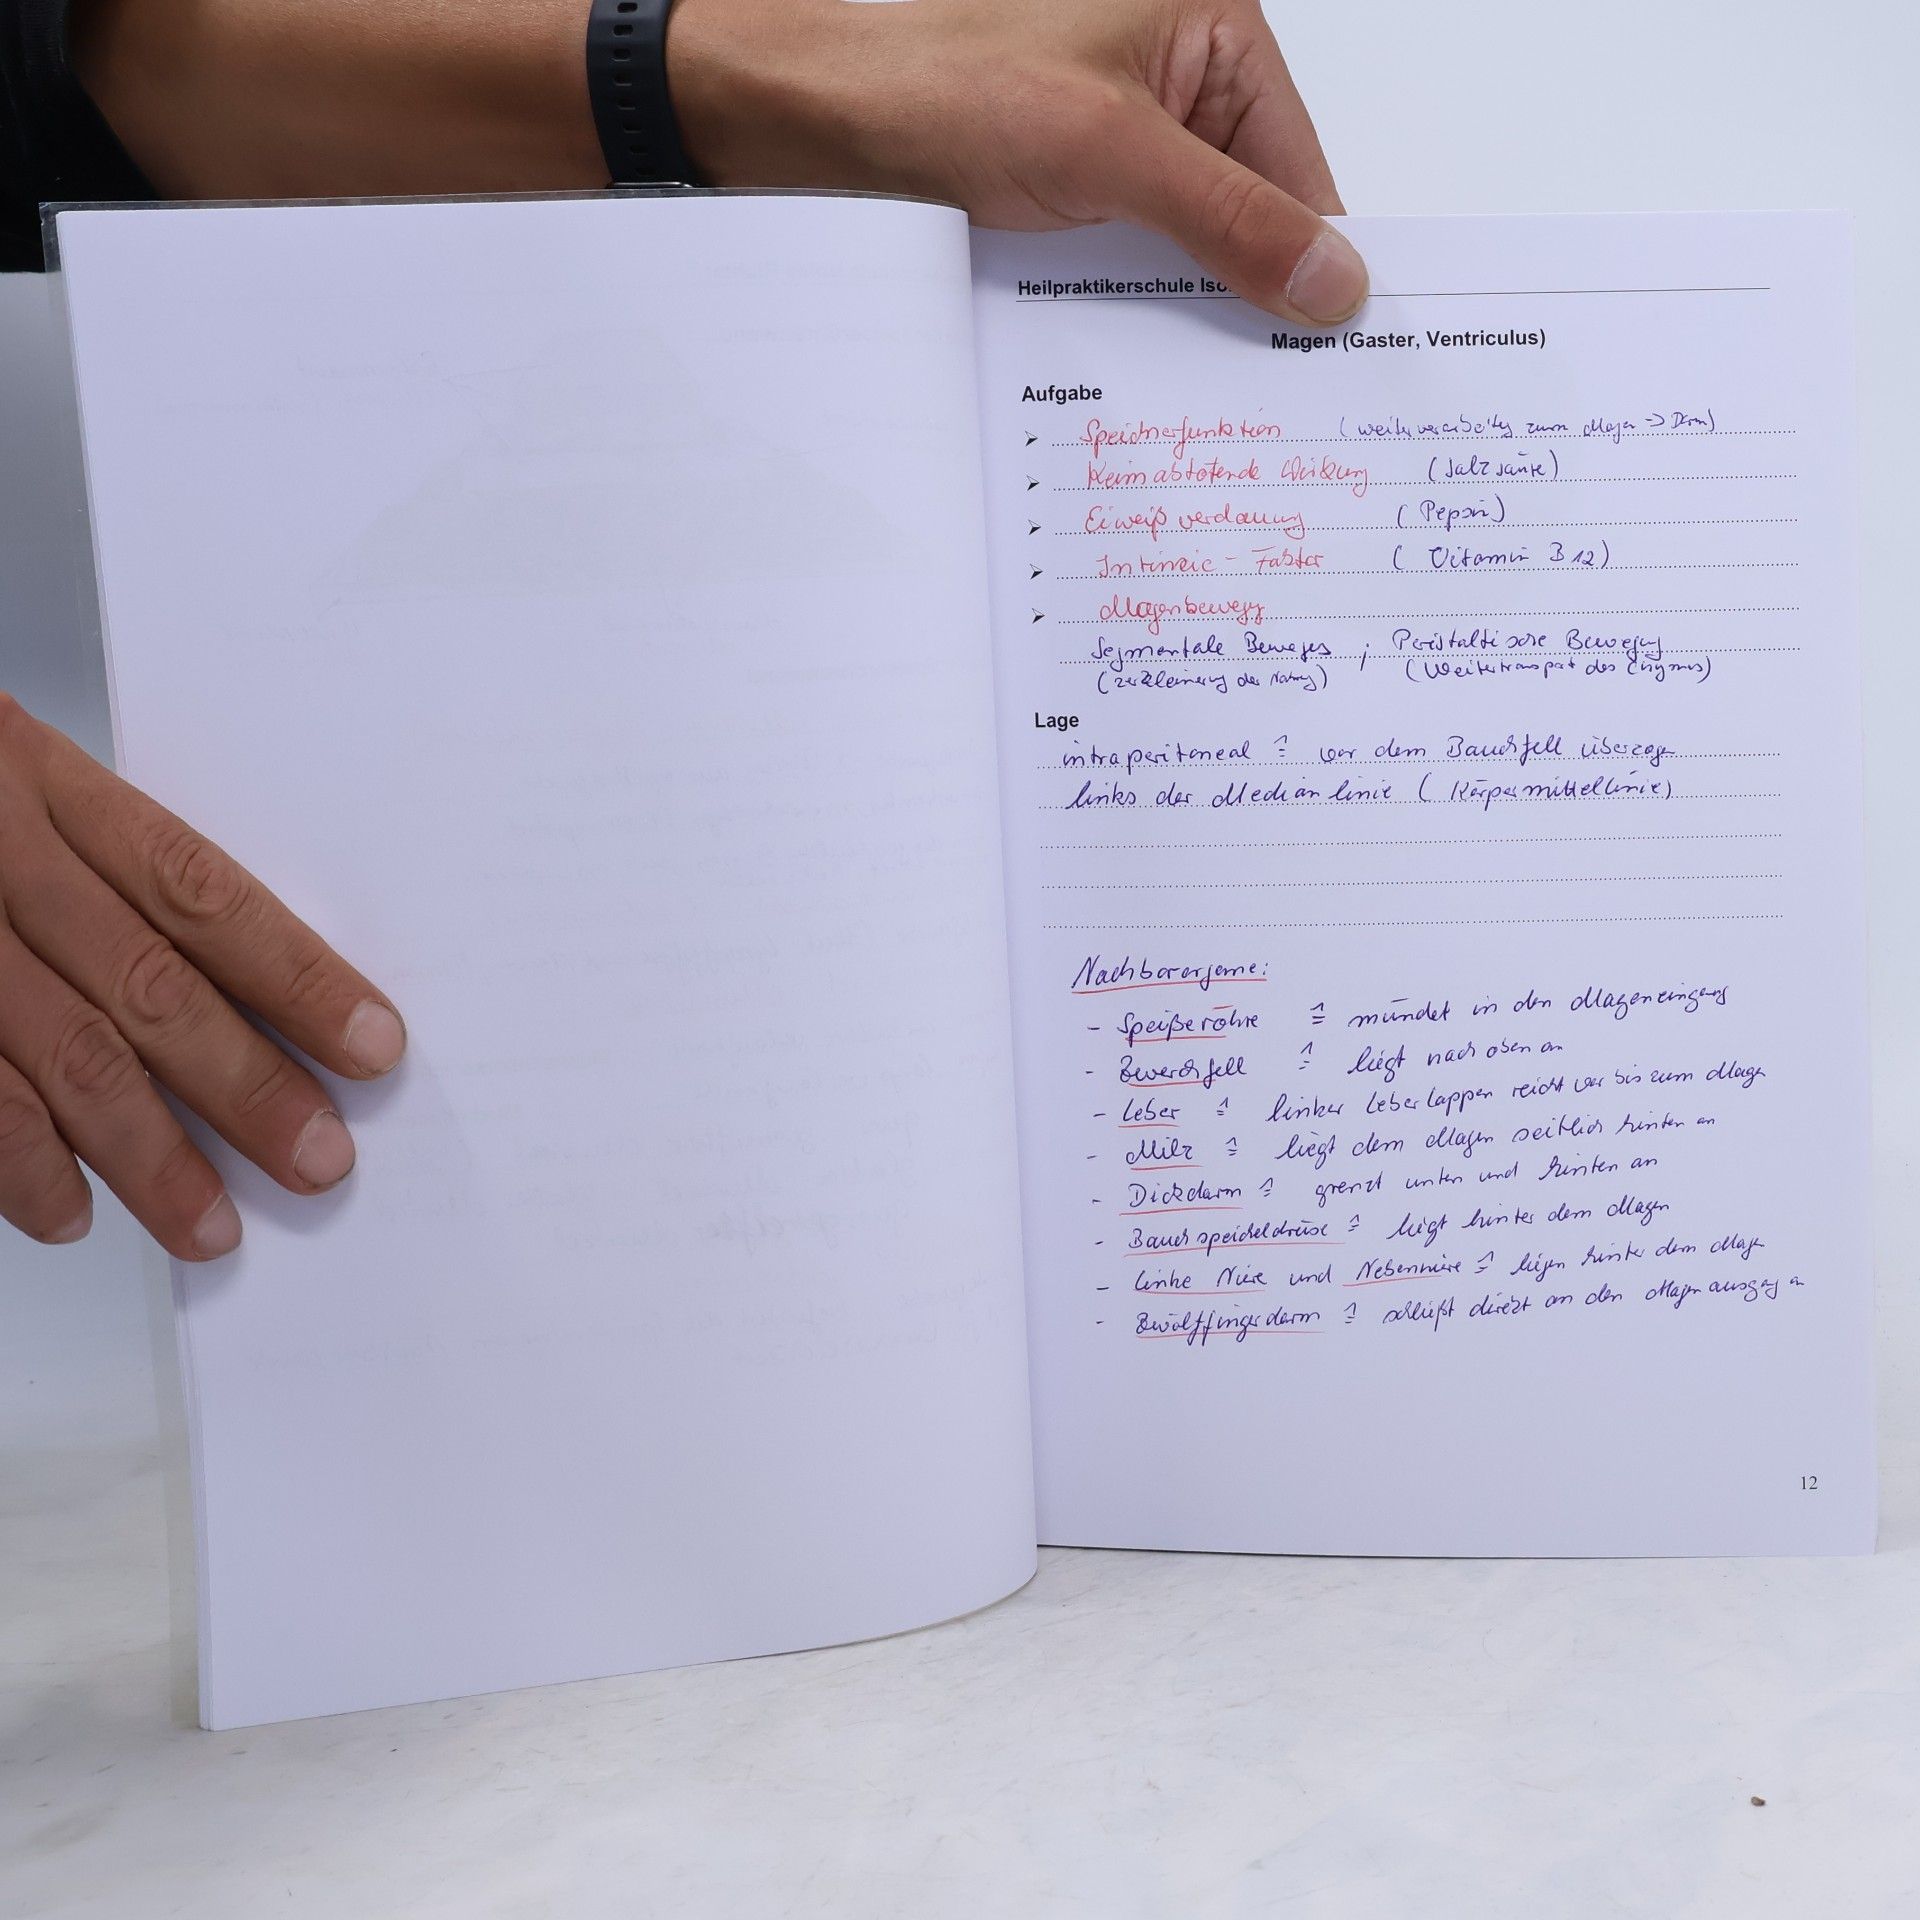 Heilpraktikerschule Iso
Magen (Gaster, Ventriculus)
Aufgabe
➤ Speicherfunktion (weiterverarbeitg zum Magen -> Darm)
➤ Keimabtötende Wirkung (Salzsäure)
➤ Eiweißverdauung (Pepsin)
➤ Intrinsic - Faktor (Vitamin B12)
➤ Magenbewegg
Segmentale Beweges ; Peristaltische Bewegung
(zerkleinerung der Nahrg) (Weitertransport des Chymus)
Lage
intraperitoneal ≙ von dem Bauchfell überzogen
links der Medianlinie (Körpermittellinie)
Nachbarorgane:
- Speißeröhre ≙ mündet in den Mageneingang
- Zwerchfell ≙ liegt nach oben an
- Leber ≙ linker Leberlappen reicht vor bis zum Magen
- Milz ≙ liegt dem Magen seitlich hinten an
- Dickdarm ≙ grenzt unten und hinten an
- Bauchspeicheldrüse ≙ liegt hinter dem Magen
- linke Niere und Nebenniere ≙ liegen hinter dem Magen
- Zwölffingerdarm ≙ schließt direkt an den Magenausgang an
12